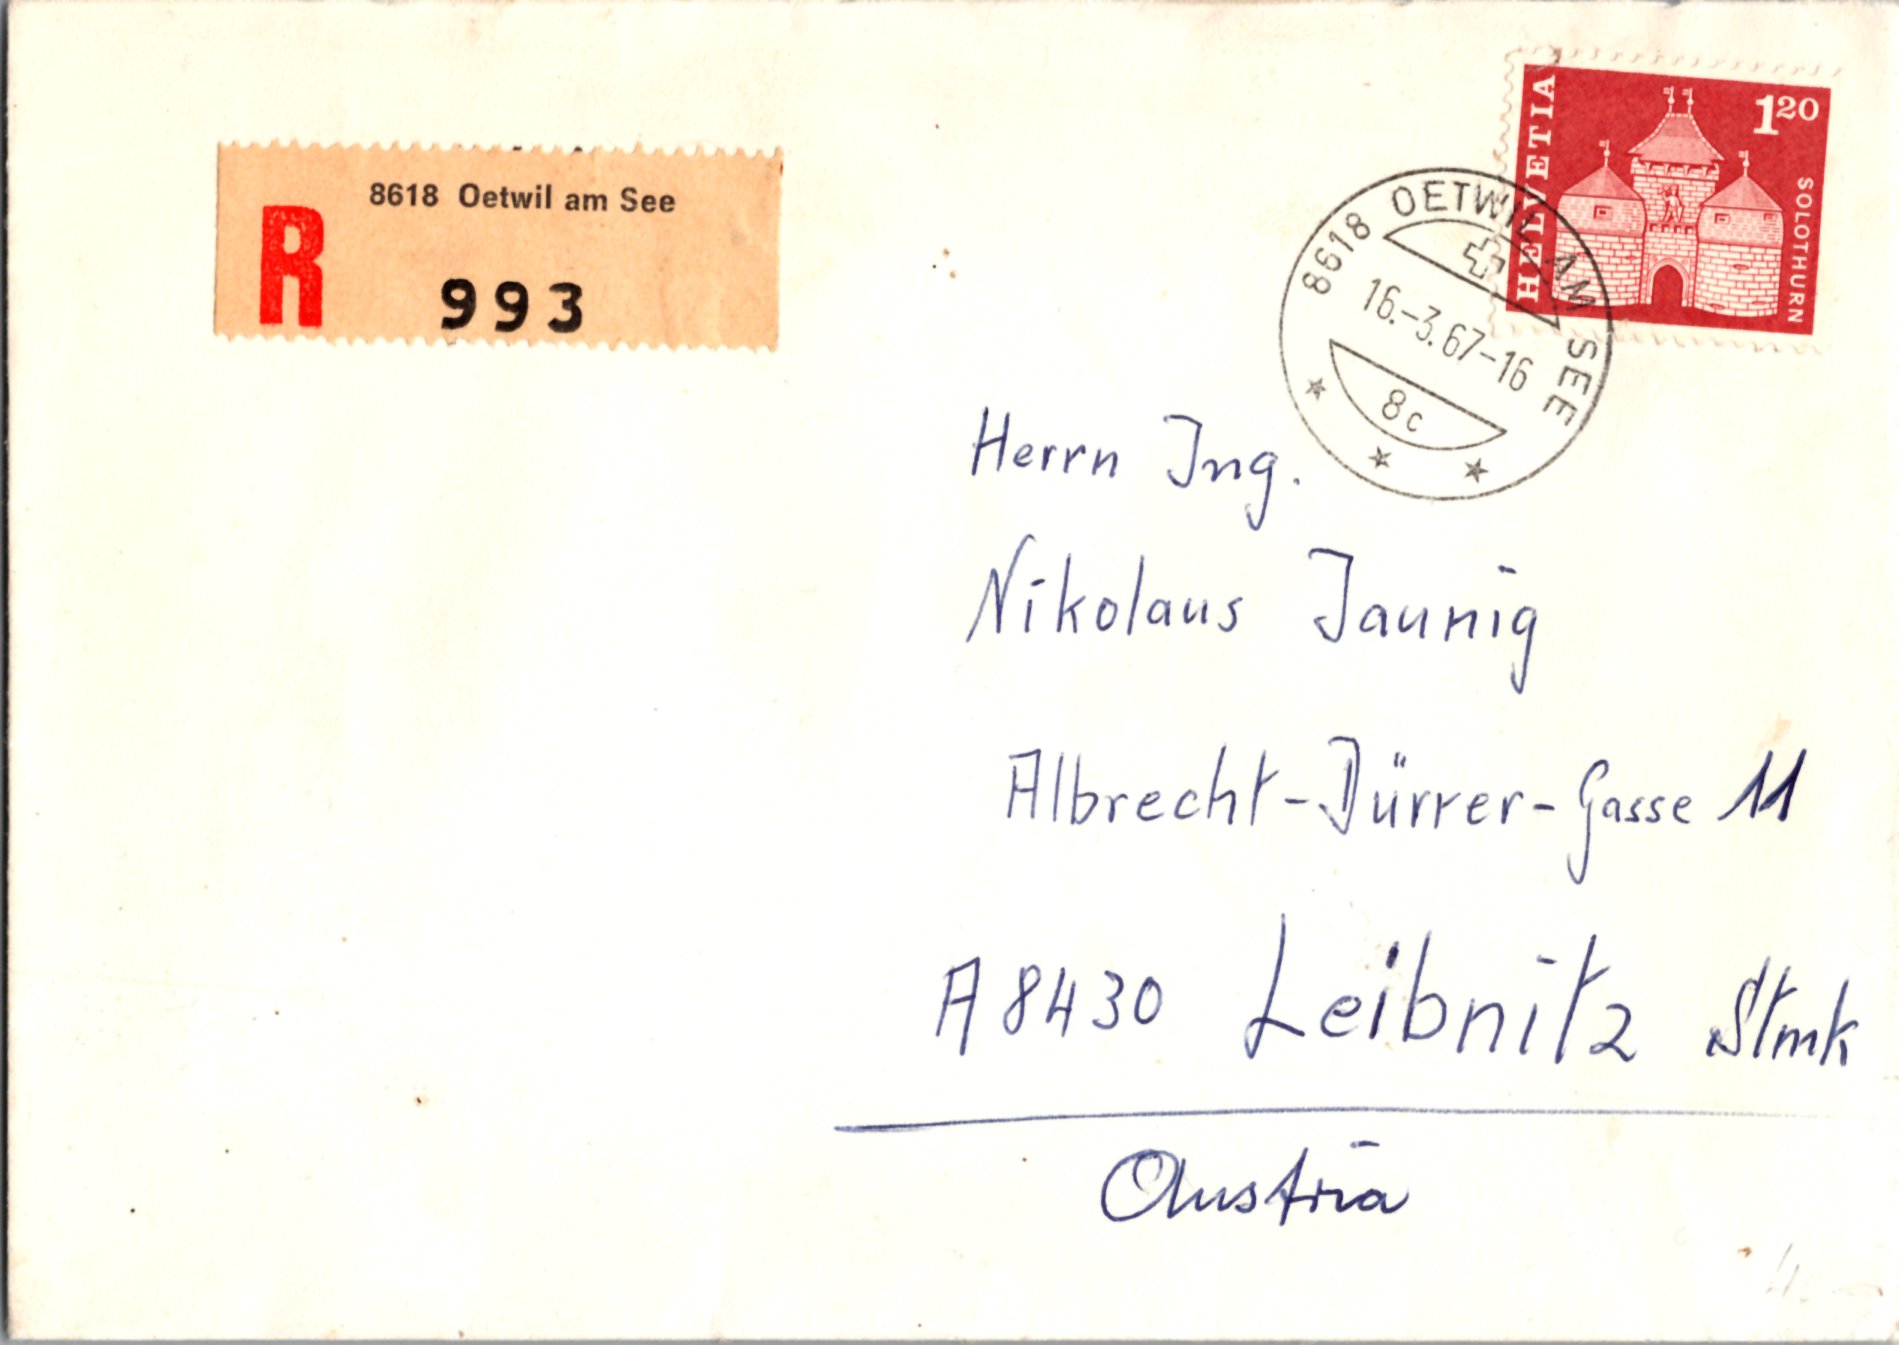 8618 Oetwil am See
R
993
HELVETIA
120
SOLOTHURN
8618 OETWIL AM SEE
16.-3.67-16
8c
Herrn Ing.
Nikolaus Jaunig
Albrecht-Dürrer-Gasse 11
A 8430 Leibnitz Stmk
Austria